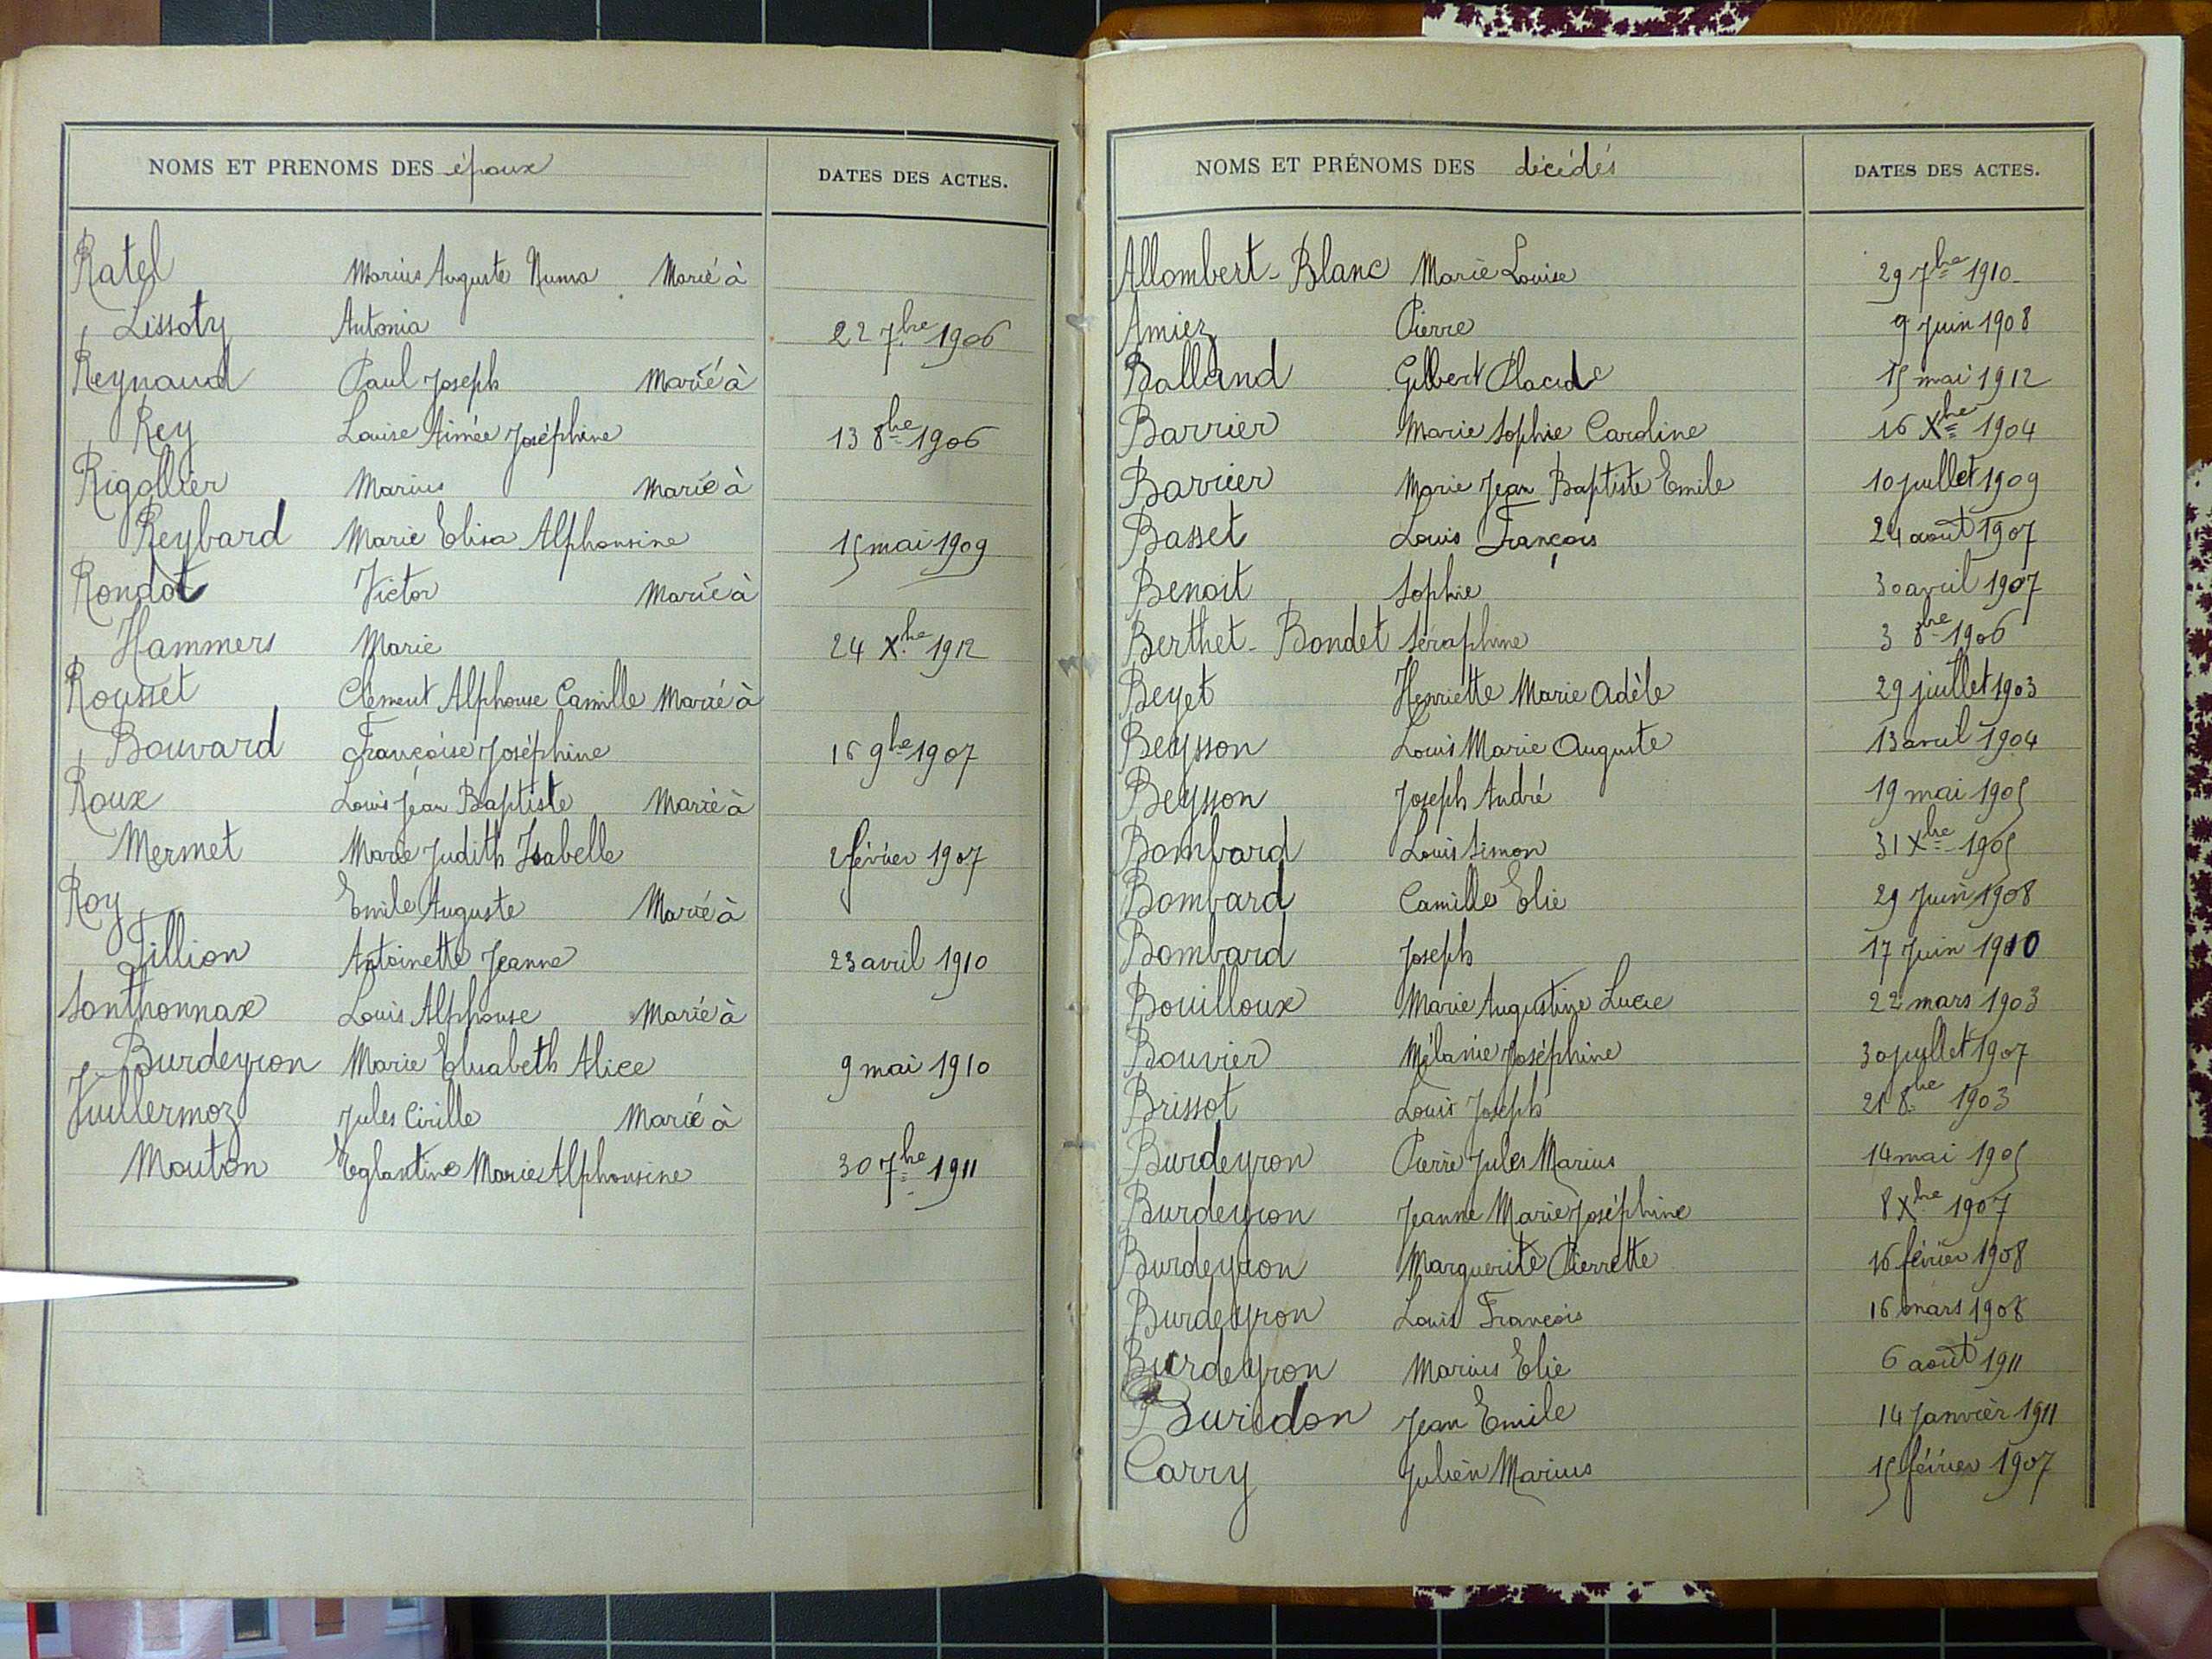 NOMS ET PRENOMS DES époux DATES DES ACTES.
Ratel Marius Auguste Numa Marié à
Lissoty Antonia 22 7bre 1906
Reynaud Paul Joseph Marié à
Rey Louise Aimée Joséphine 13 8bre 1906
Rigollier Marius Marié à
Reybard Marie Elisa Alphonsine 15 mai 1909
Rondot Victor Marié à
Hammers Marie 24 Xbre 1912
Rousset Clément Alphonse Camille Marié à
Bouvard Françoise Joséphine 16 9bre 1907
Roux Louis Jean Baptiste Marié à
Mermet Marie Judith Isabelle 2 février 1907
Roy Emile Auguste Marié à
Tillion Antoinette Jeanne 23 avril 1910
Sonthonnax Louis Alphonse Marié à
Burdeyron Marie Elisabeth Alice 9 mai 1910
Vuillermoz Jules Cirille Marié à
Mouton Eglantine Marie Alphonsine 30 7bre 1911
NOMS ET PRÉNOMS DES décédés DATES DES ACTES.
Allombert-Blanc Marie Louise 29 7bre 1910
Amiez Pierre 9 Juin 1908
Balland Gilbert Placide 15 mai 1912
Barrier Marie Sophie Caroline 16 Xbre 1904
Barrier Marie Jean Baptiste Emile 10 juillet 1909
Basset Louis François 24 août 1907
Benoit Sophie 30 avril 1907
Berthet-Bondet Séraphine 3 8bre 1906
Beyet Henriette Marie Adèle 29 juillet 1903
Beysson Louis Marie Auguste 13 avril 1904
Beysson Joseph André 19 mai 1905
Bombard Louis Simon 31 Xbre 1905
Bombard Camille Elie 29 Juin 1908
Bombard Joseph 17 Juin 1910
Bouilloux Marie Augustine Lucie 22 mars 1903
Bouvier Mélanie Joséphine 30 juillet 1907
Brissot Louis Joseph 21 8bre 1903
Burdeyron Pierre Jules Marius 14 mai 1905
Burdeyron Jeanne Marie Joséphine 8 Xbre 1907
Burdeyron Marguerite Pierrette 16 février 1908
Burdeyron Louis François 16 mars 1908
Burdeyron Marius Elie 6 août 1911
Buridon Jean Emile 14 Janvier 1911
Carry Julien Marius 15 février 1907